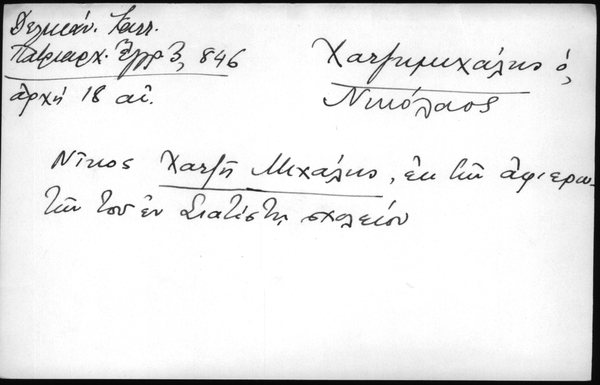 Δελικάν. Κατ.
Πατριαρχ. Ἔγγρ 3, 846
ἀρχή 18 αἰ.
Χατζημιχάλης ὁ,
Νικόλαος
Νῖκος Χατζῆ Μιχάλης, ἐκ τῶν ἀφιερω-
τῶν τοῦ ἐν Σιατίστῃ σχολείου